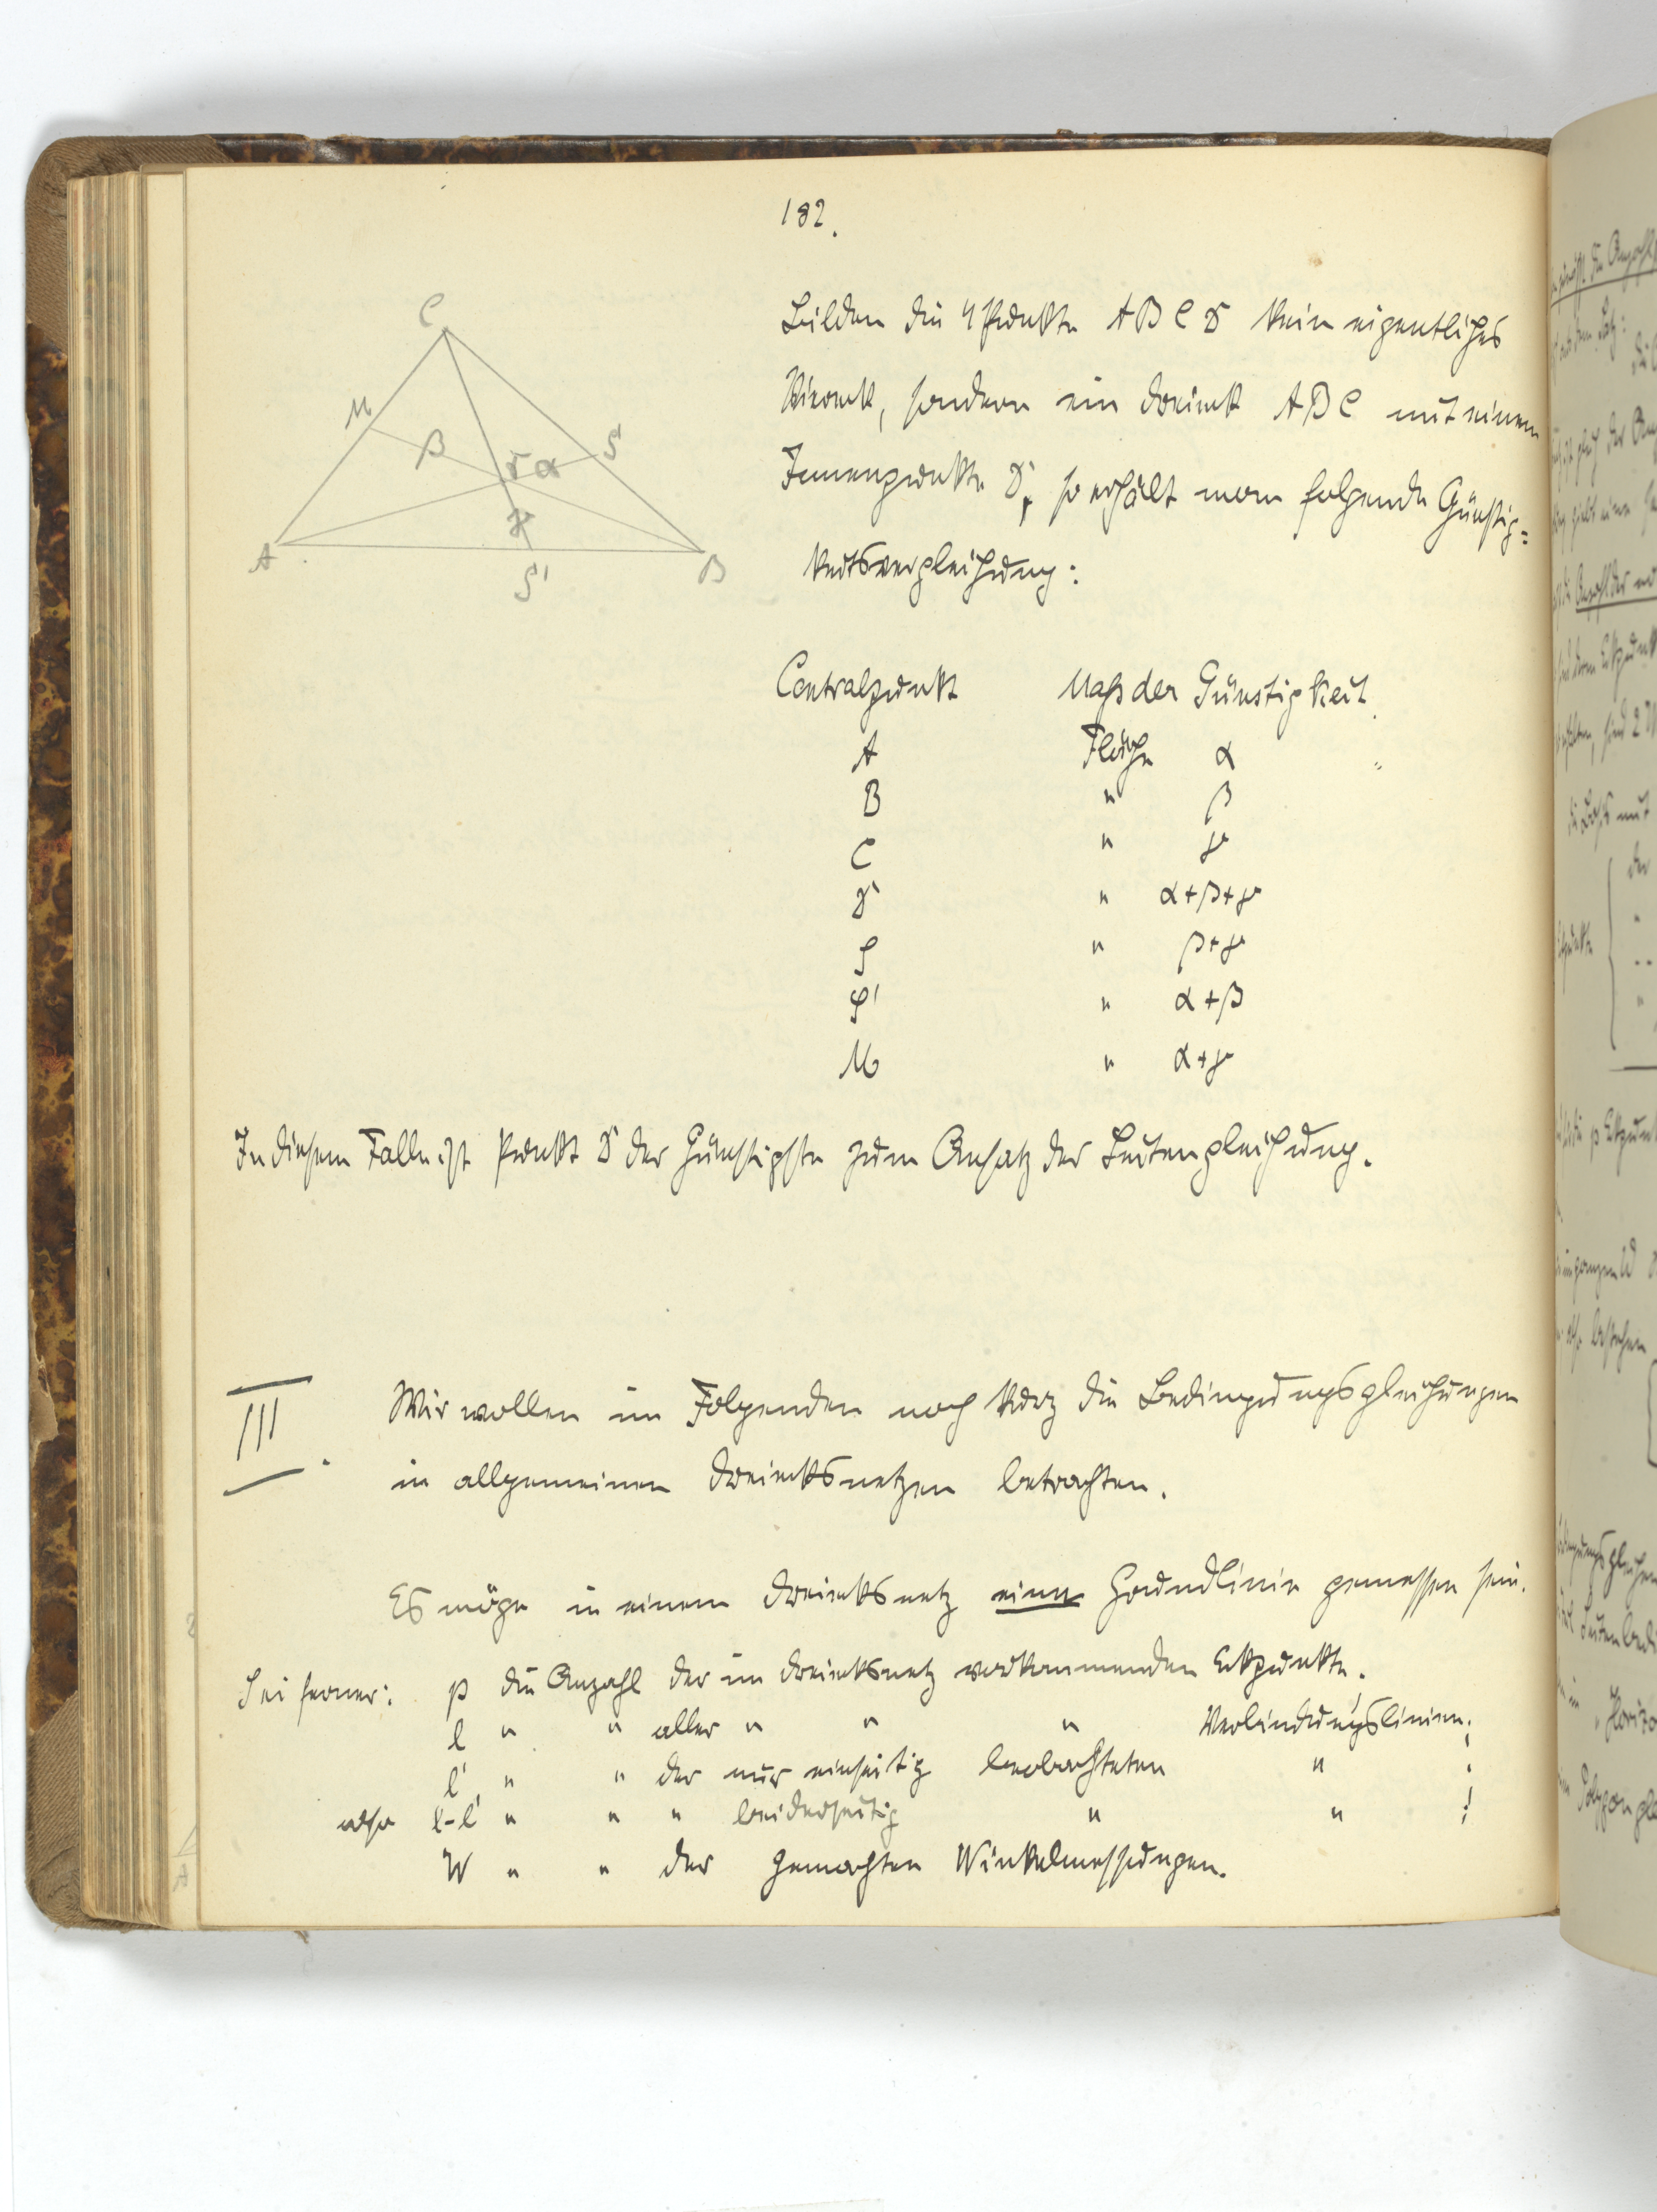 182.
C
M
β
γ
α
S
γ
A
B
S'
Bilden die 4 Punkte A B C D kein eigentliches
Viereck, sondern ein Dreieck A B C mit einem
Innenpunkte D, so erhält man folgende Günstig=
keitsvergleichung:
Centralpunkt Maß der Günstigkeit.
A Fläche α
B " β
C " γ
D " α+β+γ
S " β+γ
S' " α+β
M " α+γ
In diesem Falle ist Punkt D der Günstigste zum Ansatz der Seitengleichung.
III. Wir wollen im Folgenden noch kurz die Bedingungsgleichungen
in allgemeinen Dreiecksnetzen betrachten.
Es möge in einem Dreiecksnetz eine Grundlinie gemessen sein.
Sei ferner: p die Anzahl der im Dreiecksnetz vorkommenden Eckpunkte;
l " " aller " " " Verbindungslinien;
l' " " der nur einseitig beobachteten " ;
also l-l' " " " beiderseitig " " ;
W " " der gemachten Winkelmessungen.